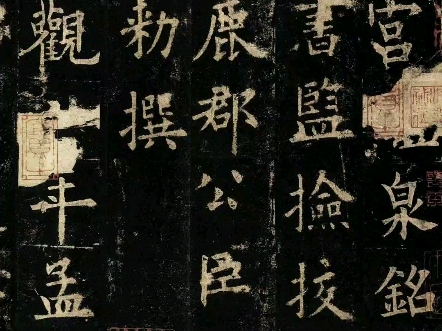 宮泉銘
書監撿挍
鹿郡公臣
勑撰
觀年孟